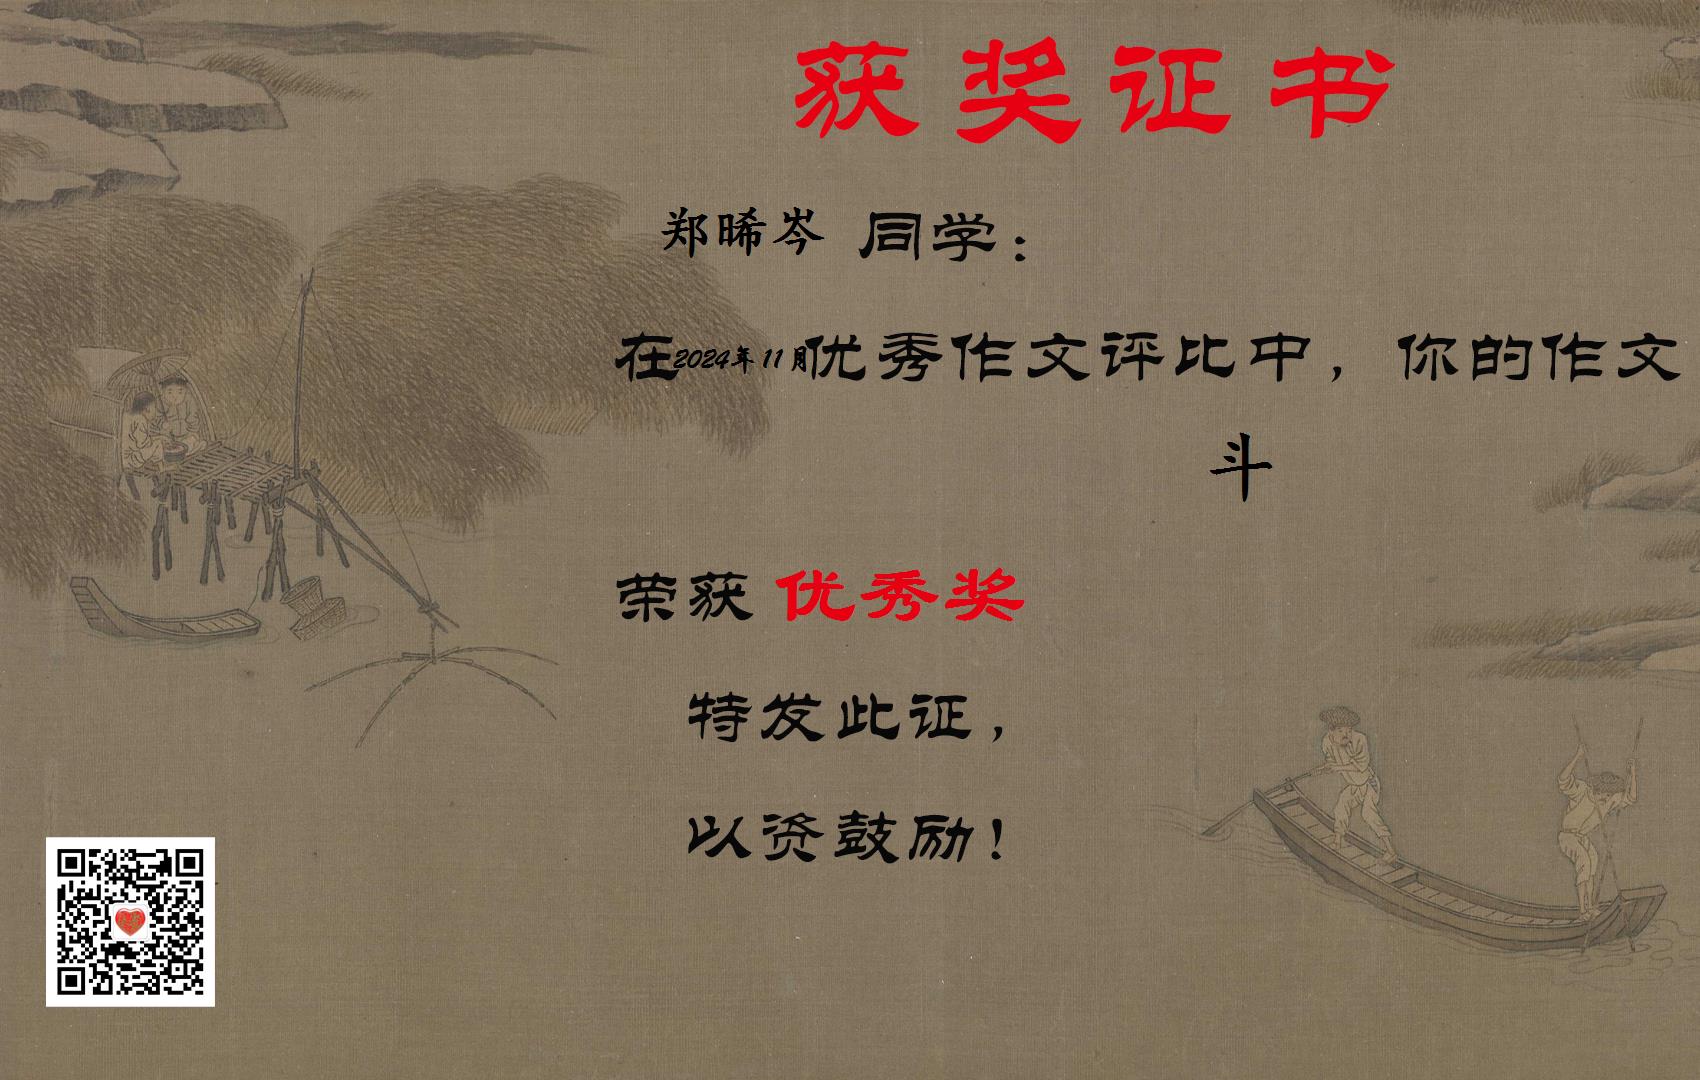 获奖证书
郑晞岑 同学：
在2024年11月优秀作文评比中，你的作文
斗
荣获 优秀奖
特发此证，
以资鼓励！